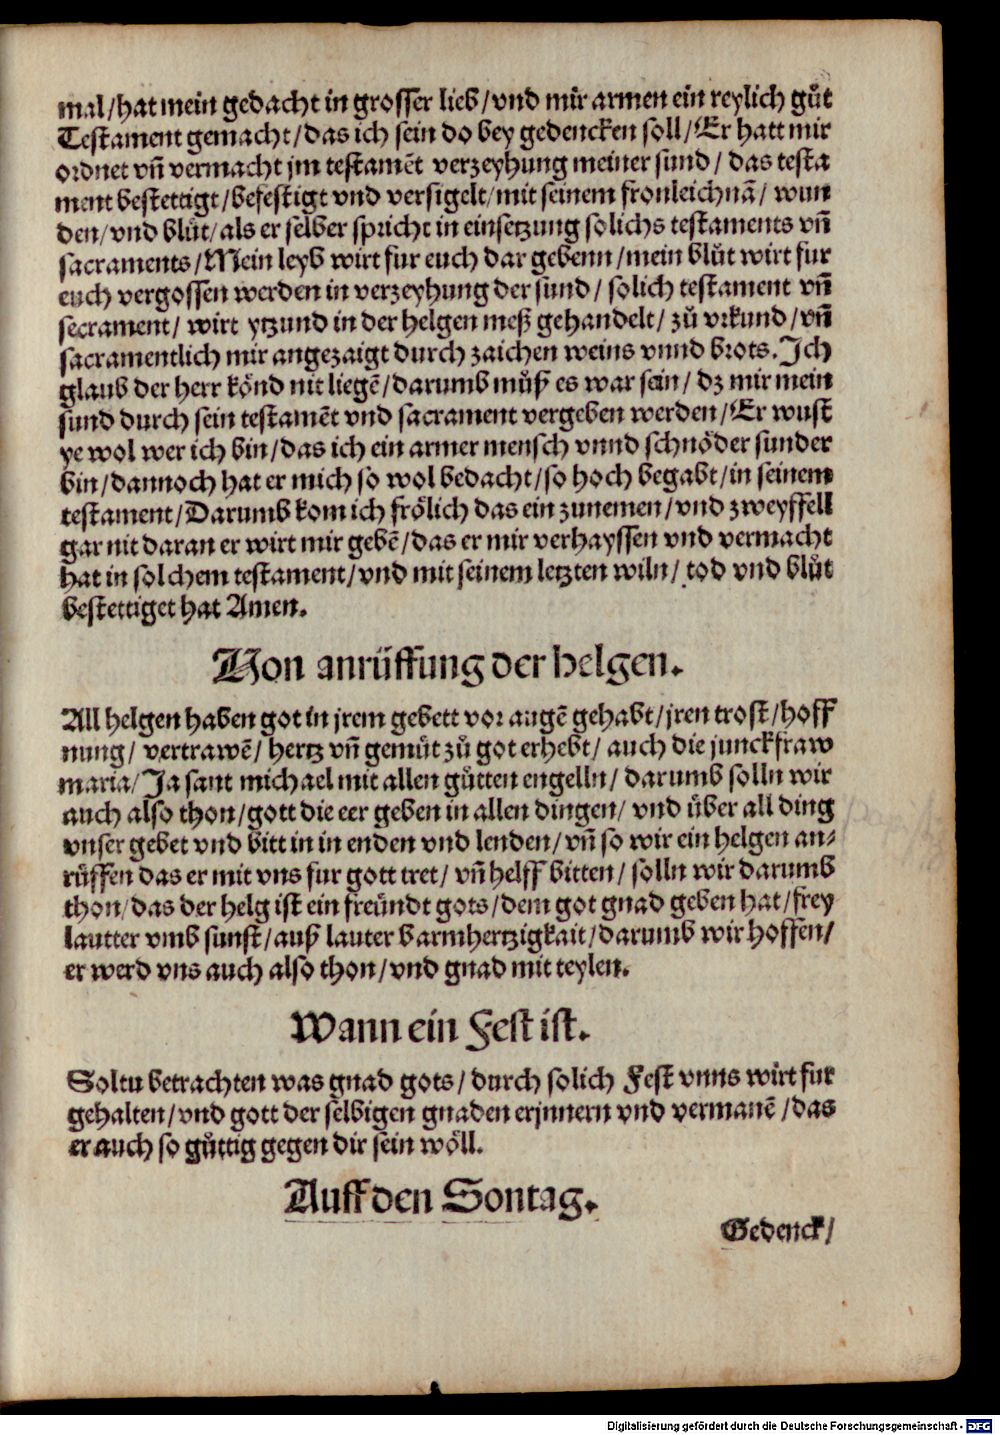 mal/hat mein gedacht in grosser lieb/vnd mir armen ein reylich gůt
Testament gemacht/das ich sein do bey gedencken soll/Er hatt mir
ordnet vñ vermacht jm testamẽt verzeyhung meiner sund/ das testa
ment bestettigt/befestigt vnd versigelt/mit seinem fronleichnã/ wun
den/vnd blůt/als er selber spricht in einsetzung solichs testaments vñ
sacraments/Mein leyb wirt fur euch dar gebenn/mein blůt wirt fur
euch vergossen werden in verzeyhung der sund/ solich testament vñ
secrament/ wirt ytzund in der helgen meß gehandelt/ zů vrkund/vñ
sacramentlich mir angezaigt durch zaichen weins vnnd brots. Ich
glaub der herr könd nit liegẽ/darumb můß es war sein/ dz mir mein
sund durch sein testamẽt vnd sacrament vergeben werden/Er wust
ye wol wer ich bin/das ich ein armer mensch vnnd schnöder sunder
bin/dannoch hat er mich so wol bedacht/so hoch begabt/in seinem
testament/Darumb kom ich frölich das ein zunemen/vnd zweyffell
gar nit daran er wirt mir gebẽ/das er mir verhayssen vnd vermacht
hat in solchem testament/vnd mit seinem letzten wiln/ tod vnd blůt
bestettiget hat Amen.
Von anrüffung der helgen.
All helgen haben got in jrem gebett vor augẽ gehabt/jren trost/hoff
nung/ vertrawẽ/ hertz vñ gemůt zů got erhebt/ auch die junckfraw
maria/Ja sant michael mit allen gůtten engelln/ darumb solln wir
auch also thon/gott die eer geben in allen dingen/ vnd über all ding
vnser gebet vnd bitt in in enden vnd lenden/vñ so wir ein helgen an-
rüffen das er mit vns fur gott tret/ vñ helff bitten/ solln wir darumb
thon/das der helg ist ein freündt gots/dem got gnad geben hat/frey
lautter vmb sunst/auß lauter barmhertzigkait/darumb wir hoffen/
er werd vns auch also thon/vnd gnad mit teylen.
Wann ein Fest ist.
Soltu betrachten was gnad gots/ durch solich Fest vnns wirt fur
gehalten/vnd gott der selbigen gnaden erjnnern vnd vermanẽ/das
er auch so gůttig gegen dir sein wöll.
Auff den Sontag.
Gedenck/
Digitalisierung gefördert durch die Deutsche Forschungsgemeinschaft - DFG